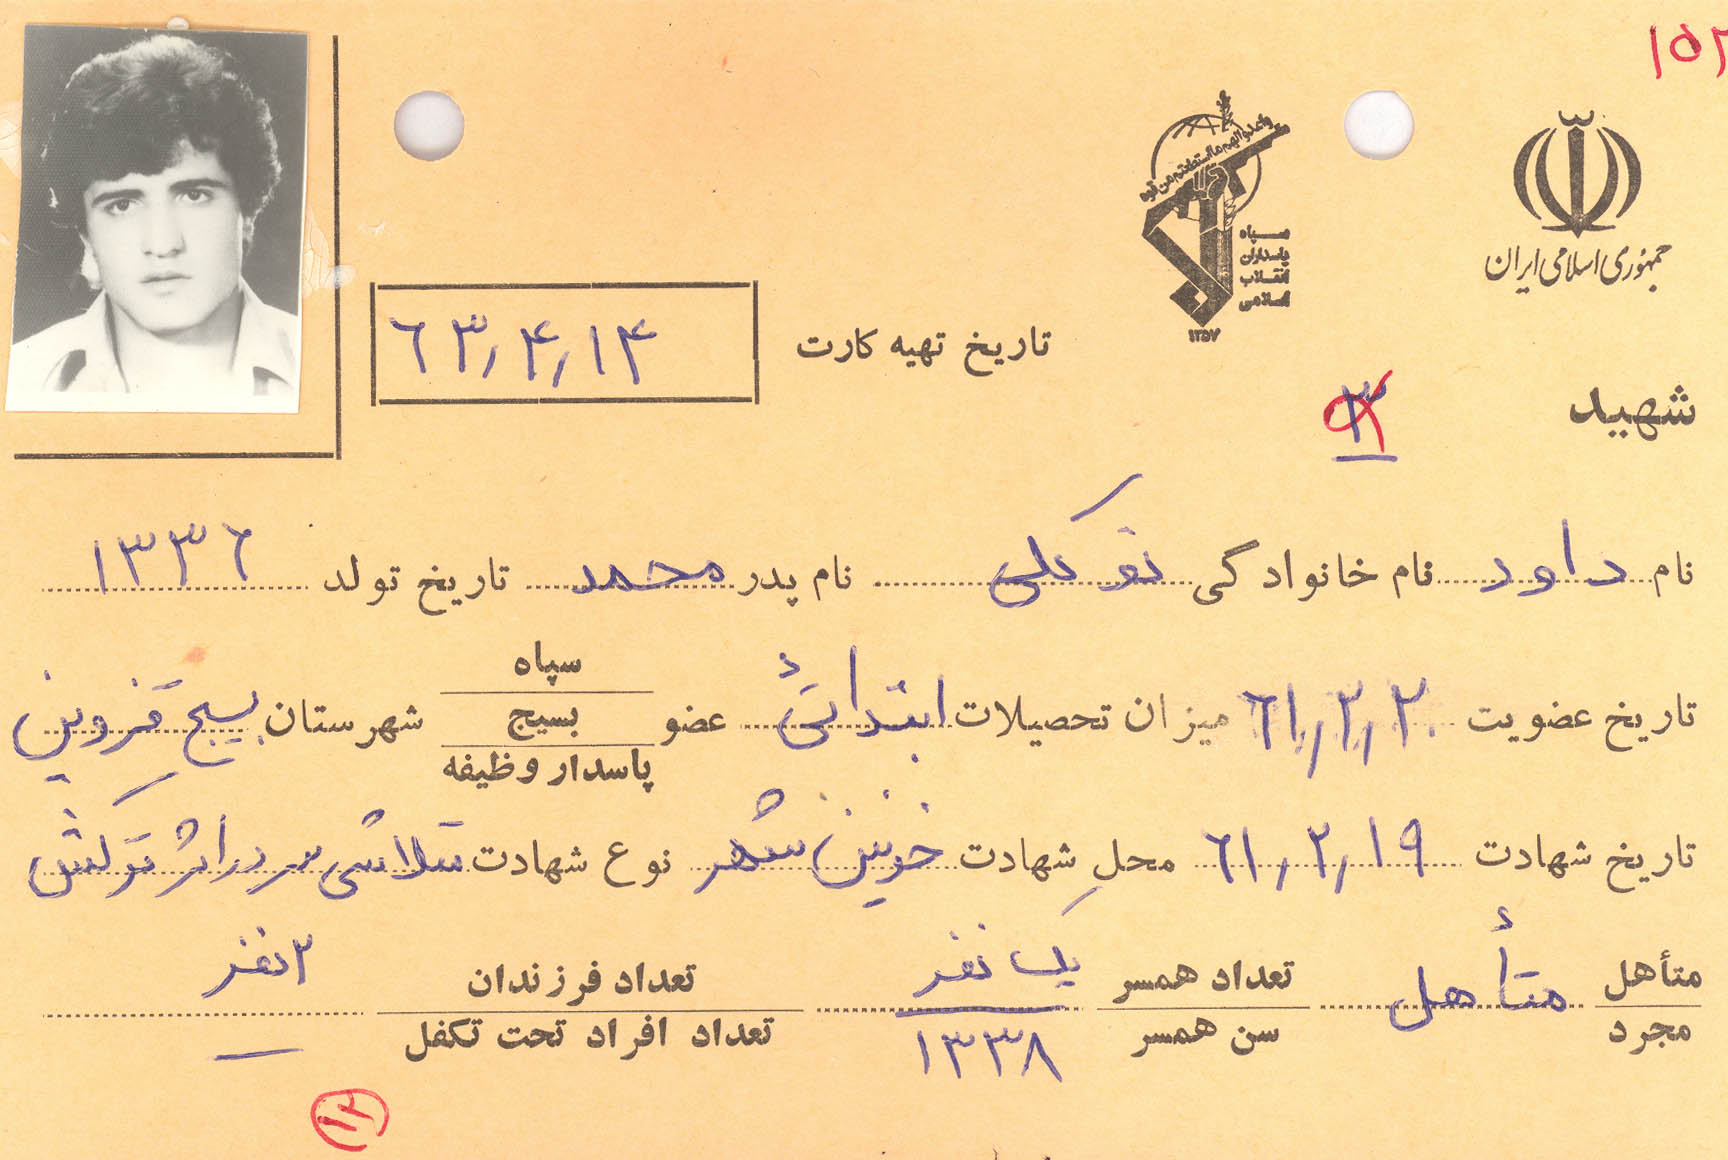 ۱۵۲
جمهوری اسلامی ایران
واعدوا لهم ما استطعتم من قوة
سپاه
پاسداران
انقلاب
اسلامی
۱۳۵۷
تاریخ تهیه کارت ۶۳٫۴٫۱۴
شهید
۳
نام داود نام خانوادگی توکلی نام پدر محمد تاریخ تولد ۱۳۳۶
تاریخ عضویت ۶۱٫۲٫۲۰ میزان تحصیلات ابتدائی عضو سپاه بسیج پاسدار وظیفه شهرستان بسیج قزوین
تاریخ شهادت ۶۱٫۲٫۱۹ محل شهادت خونین شهر نوع شهادت متلاشی سر در اثر ترکش
متأهل مجرد متأهل تعداد همسر یک نفر تعداد فرزندان ۲ نفر
سن همسر ۱۳۳۸ تعداد افراد تحت تکفل —
۱۲